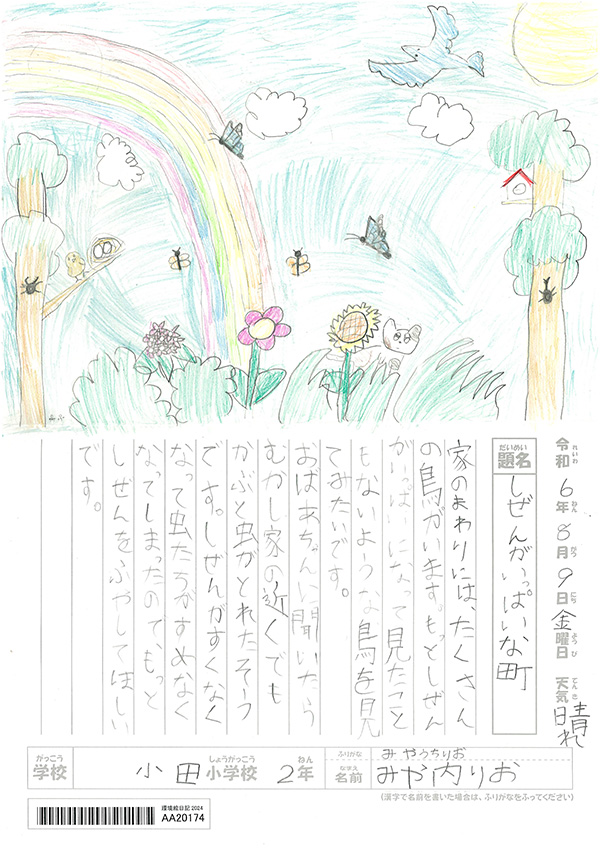 令和6年8月9日金曜日 天気 晴れ
れいわ ねん がつ にち ようび てんき
だいめい
題名 しぜんがいっぱいな町
家のまわりには、たくさん
の鳥がいます。もっとしぜん
がいっぱいになって見たこと
もないような鳥を見
てみたいです。
おばあちゃんに聞いたら
むかし家の近くでも
かぶと虫がとれたそう
です。しぜんがすくなく
なって虫たちがすめなく
なってしまったのでもっと
しぜんをふやしてほしい
です。
がっこう しょうがっこう ねん ふりがな みやうちりお
学校 小田小学校 2年 なまえ 名前 みや内りお
(漢字で名前を書いた場合は、ふりがなをふってください)
環境絵日記2024
AA20174